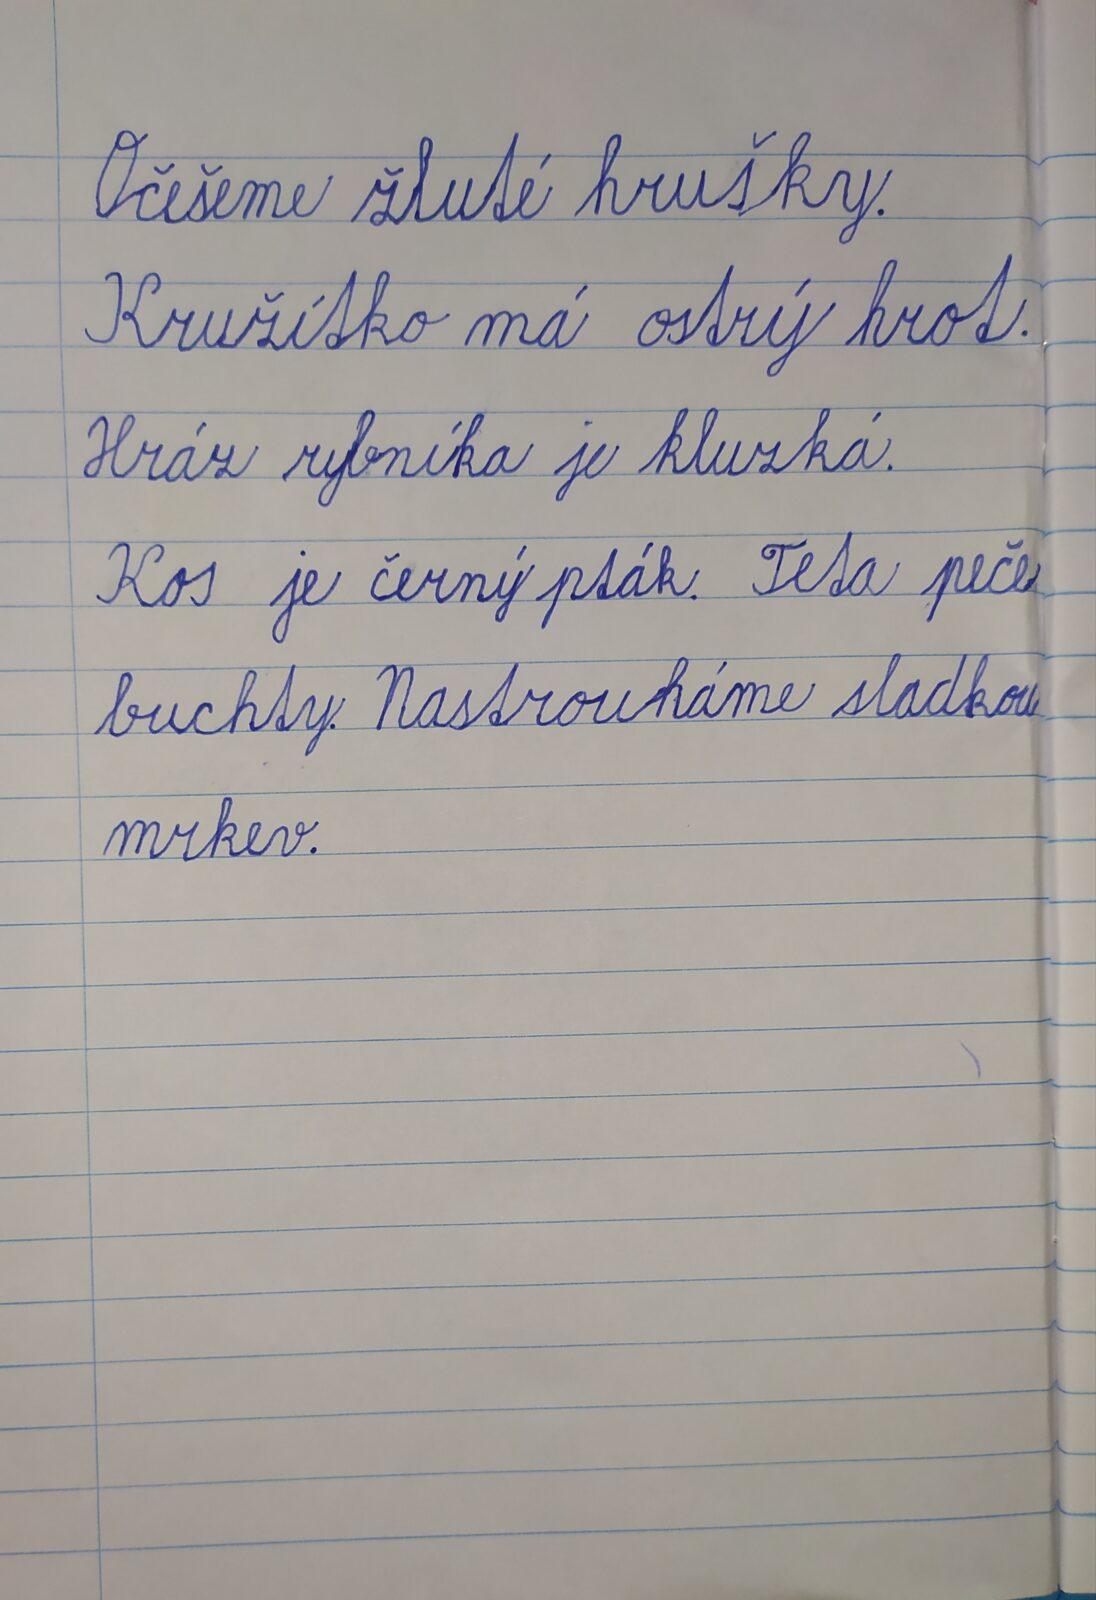 Očešeme žluté hrušky.
Kružítko má ostrý hrot.
Hráz rybníka je kluzká.
Kos je černý pták. Teta peče
buchty. Nastrouháme sladkou
mrkev.